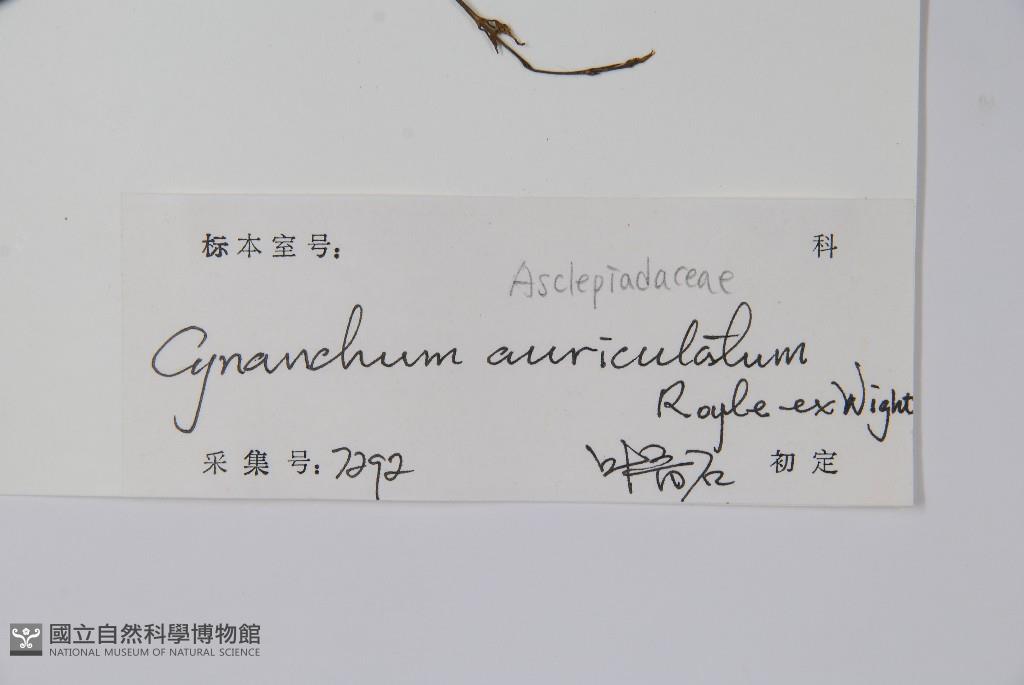 标本室号： 科
Asclepiadaceae
Cynanchum auriculatum
Royle ex Wight
采集号：7292 初定
國立自然科學博物館
NATIONAL MUSEUM OF NATURAL SCIENCE